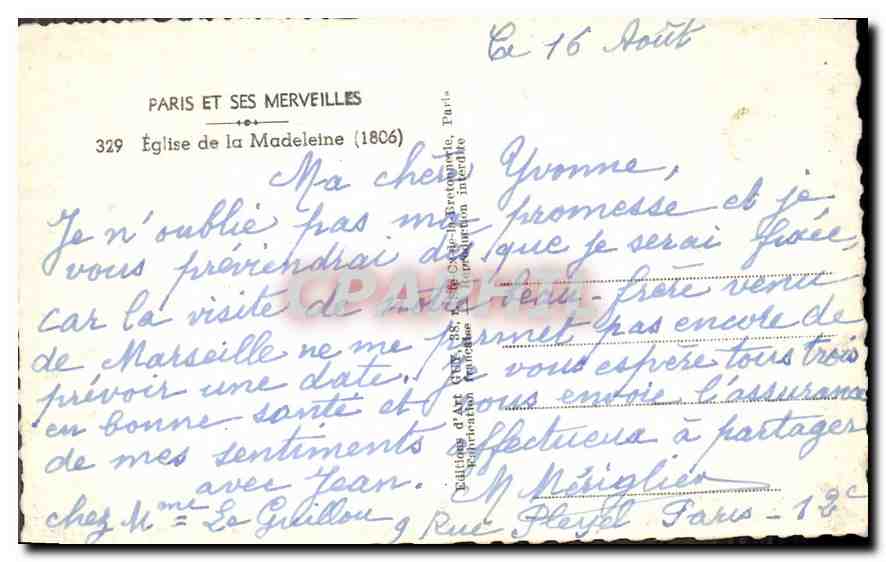 Ce 16 Août
PARIS ET SES MERVEILLES
329 Église de la Madeleine (1806)
Ma chère Yvonne,
Je n'oublie pas ma promesse et je
vous préviendrai dès que je serai fixée,
car la visite de notre beau-frère venu
de Marseille ne me permet pas encore de
prévoir une date. Je vous espère tous trois
en bonne santé et vous envoie l'assurance
de mes sentiments affectueux à partager
avec Jean. M Mériglier
chez Mme Le Guillou 9 Rue Pleyel Paris - 12e
Editions d'Art GUY, 38, Ste-Croix-la-Bretonnerie, Paris
Fabrication française Reproduction interdite
CPARHIL